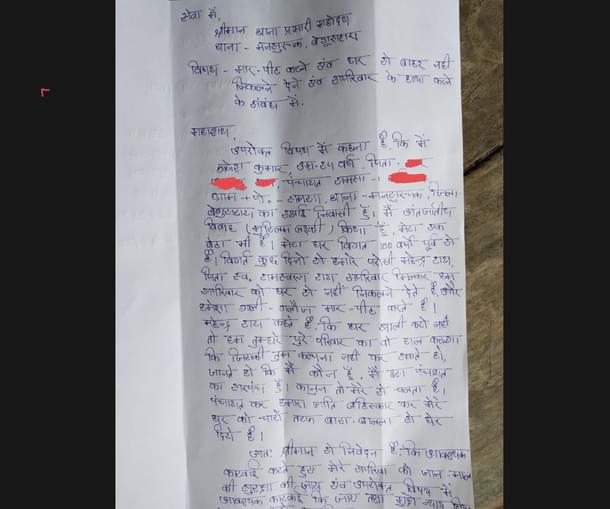 सेवा में,
श्रीमान थाना प्रभारी महोदय
थाना - मनसुरचक, बेगूसराय
विषय - मार-पीट करने एवं घर से बाहर नहीं
निकलने देने एवं सपरिवार के हत्या करने
के संबंध में.
महाशय,
उपरोक्त विषय में कहना है, कि मैं
कुमार, उम्र-24 वर्ष, पिता -
पंचायत समसा -1
ग्राम + पो. - समसा, थाना - मनसुरचक, जिला
बेगूसराय का स्थाई निवासी हूँ। मैं अंतर्जातीय
विवाह (मुस्लिम लड़की) किया हूँ, मेरा एक
बेटा भी है। मेरा घर विगत 100 वर्षों पूर्व से
है। विगत कुछ दिनों से हमारे पड़ोसी महेन्द्र राय,
पिता स्व. रामस्वरूप राय सपरिवार मिलकर हम
सपरिवार को घर से नहीं निकलने देते हैं, और
हमेशा गाली-गलौज मार-पीट करते हैं।
महेन्द्र राय कहते हैं, कि घर खाली करो नहीं
तो हम तुम्हारे पूरे परिवार का वो हाल करूंगा
कि जिसकी तुम कल्पना नहीं कर सकते हो,
जानते हो कि मैं कौन हूँ, मैं इस पंचायत
का सरपंच हूँ। कानून तो मेरे से चलता है।
पंचायत कर हमारा जाति बहिष्कार कर मेरे
घर को चारों तरफ बांस-बल्ला से घेर
दिये हैं।
अतः श्रीमान से निवेदन है, कि आवश्यक
कारवाई करते हुए मेरे सपरिवार की जान-माल
की सुरक्षा की जाय एवं उपरोक्त विषय में
आवश्यक कारवाई कि जाए तथा मुझे न्याय